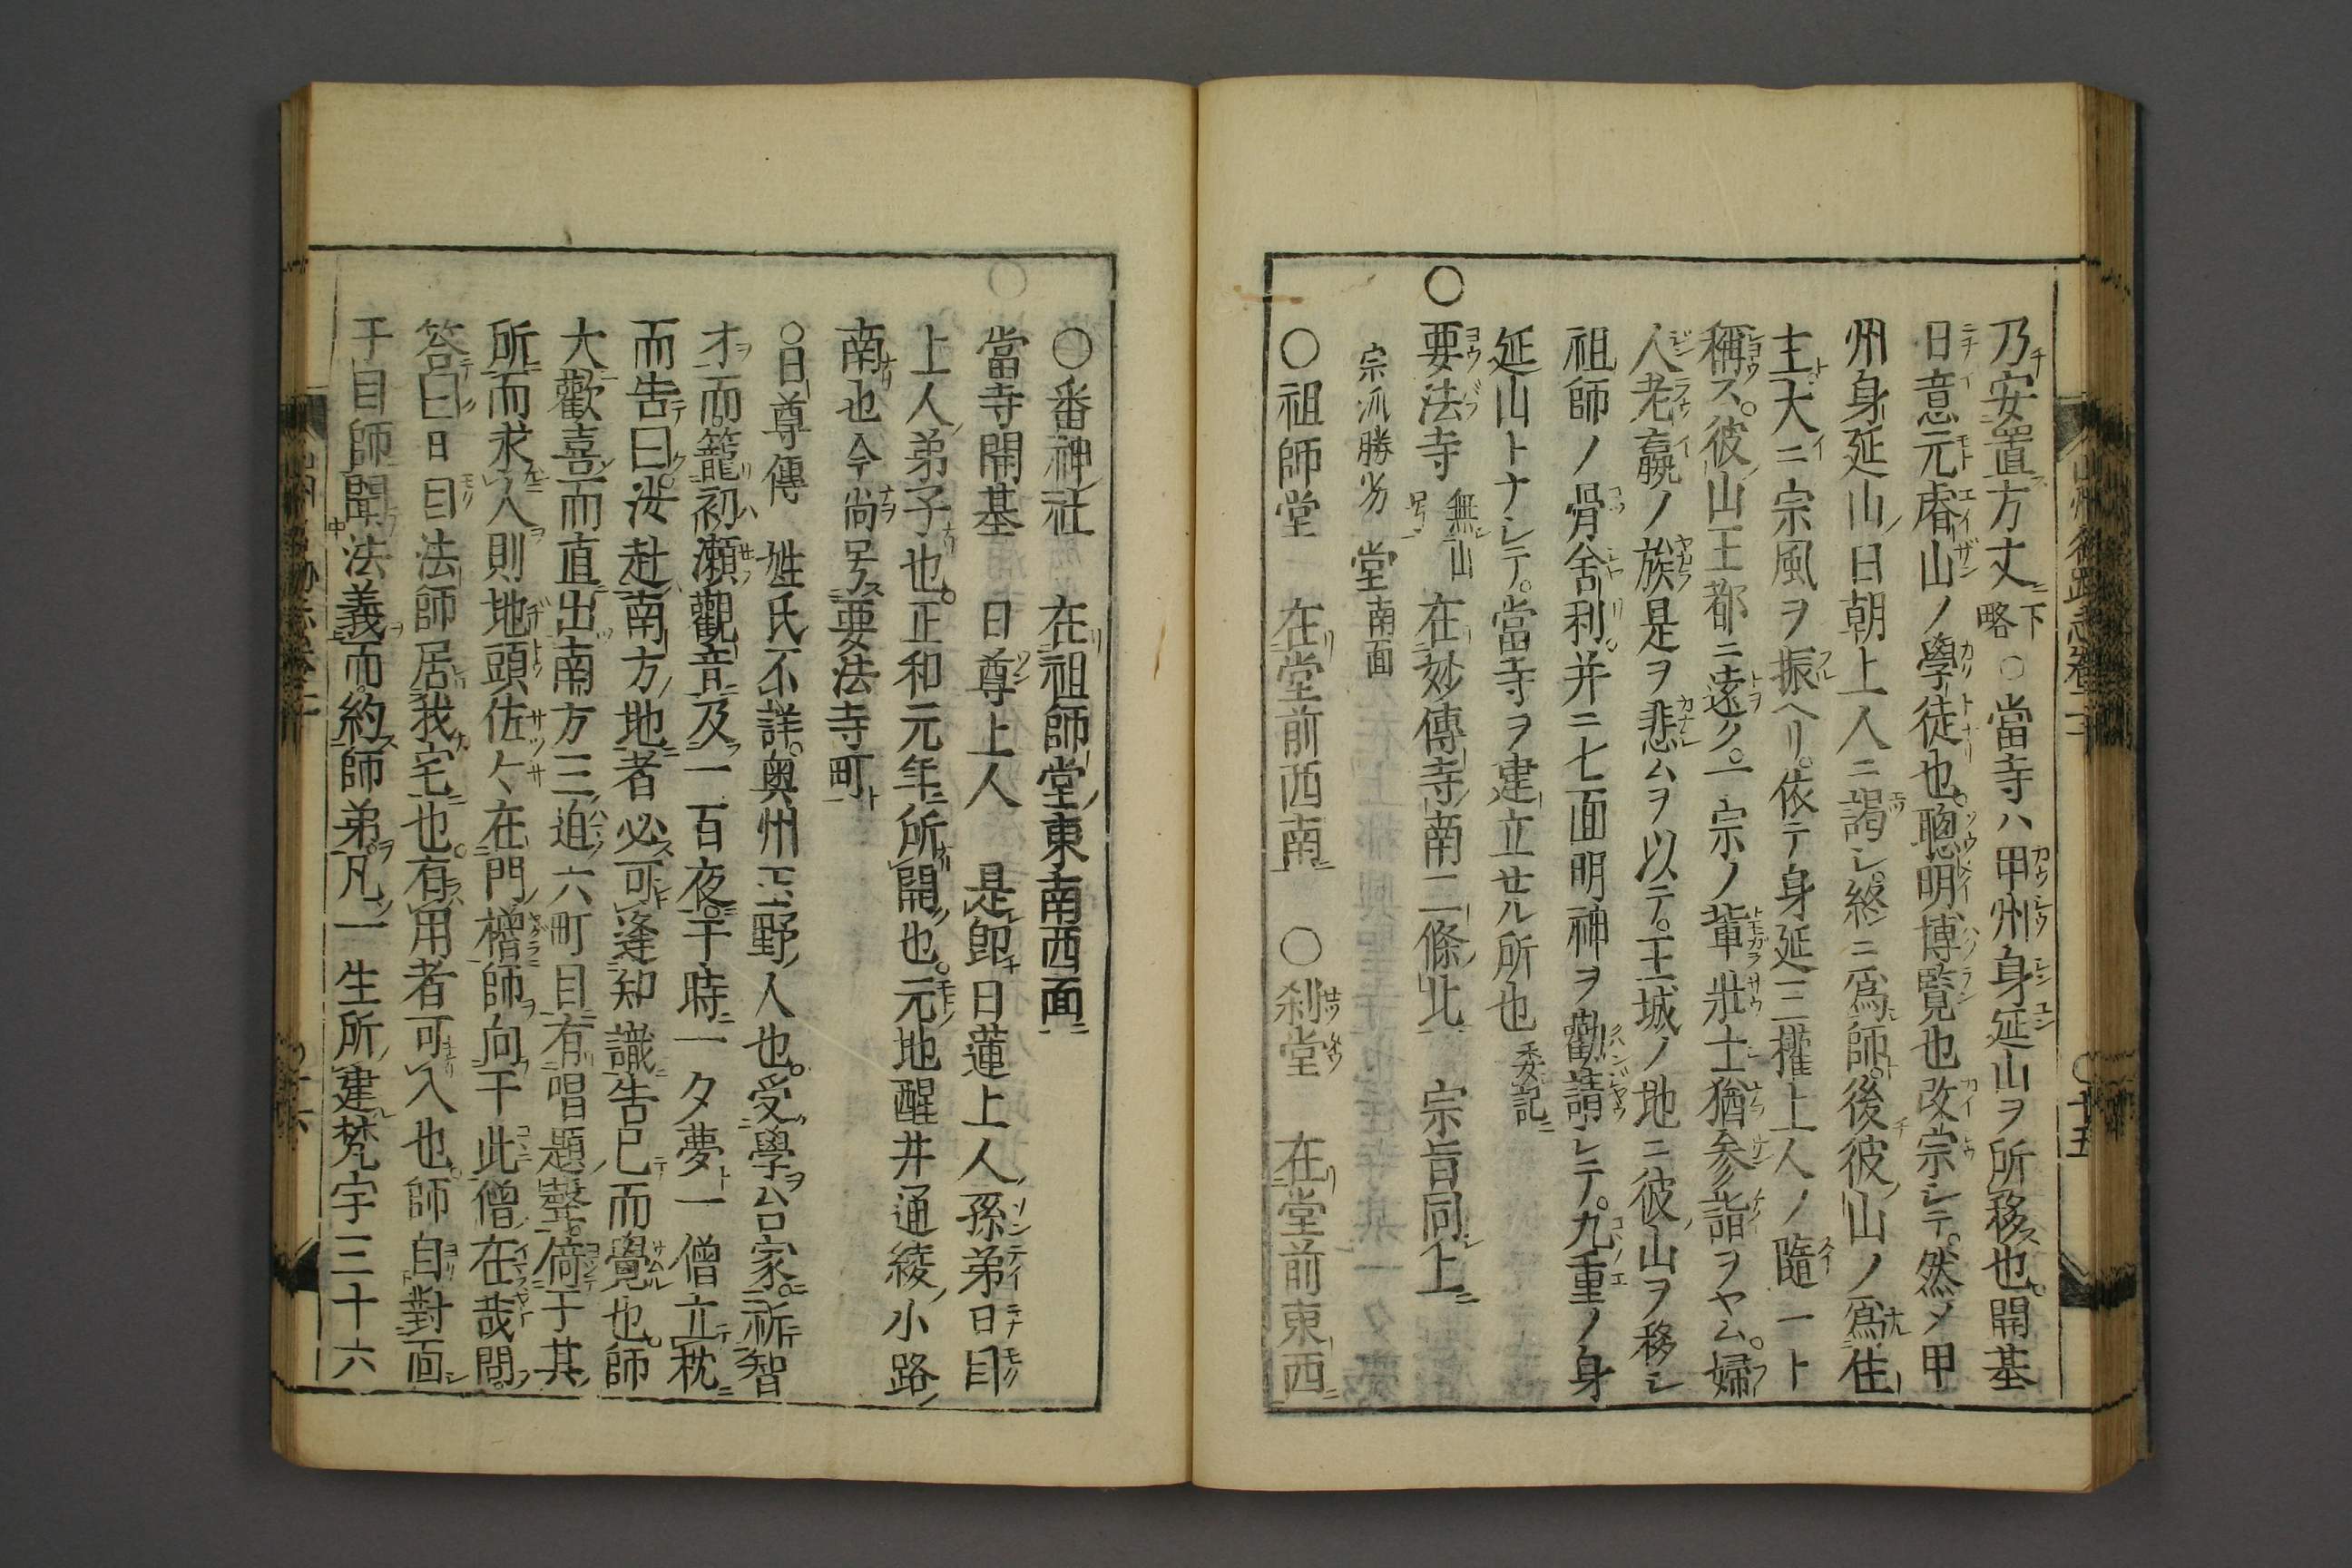 乃安置方丈ニ下略○當寺ハ甲州身延山ヲ所移也開基
日意元睿山ノ學徒也聰明博覧也改宗シテ然メ甲
州身延山ノ日朝上人ニ謁シ終ニ爲師後彼山ノ爲住
主大ニ宗風ヲ振ヘリ依テ身延三權上人ノ隨一ト
稱ス彼山王都ニ遠ク一宗ノ輩壯士猶参詣ヲヤム婦
人老嬴ノ族是ヲ悲ムヲ以テ王城ノ地ニ彼山ヲ移シ
祖師ノ骨舍利并ニ七面明神ヲ勸請シテ九重ノ身
延山トナシテ當寺ヲ建立セル所也委記
○要法寺無山号在妙傳寺南二條北宗旨同上
宗派勝劣堂南面
○祖師堂在堂前西南○刹堂在堂前東西
○番神社在祖師堂東南西面
當寺開基日尊上人是卽日蓮上人孫弟日目
上人弟子也正和元年所開也元地醒井通綾小路
南也今尚号要法寺町
○日尊傳姓氏不詳奥州玉野人也受學台家祈智
才而籠初瀬觀音及一百夜于時一夕夢一僧立枕
而告曰汝赴南方地者必可逢知識告已而覺也師
大歡喜而直出南方三迫六町目有唱題聲倚于其
所而求入則地頭佐々在門櫓師向于此僧在哉問
答曰日目法師居我宅也有用者可入也師自對面
于目師聞法義而約師弟凡一生所建梵宇三十六